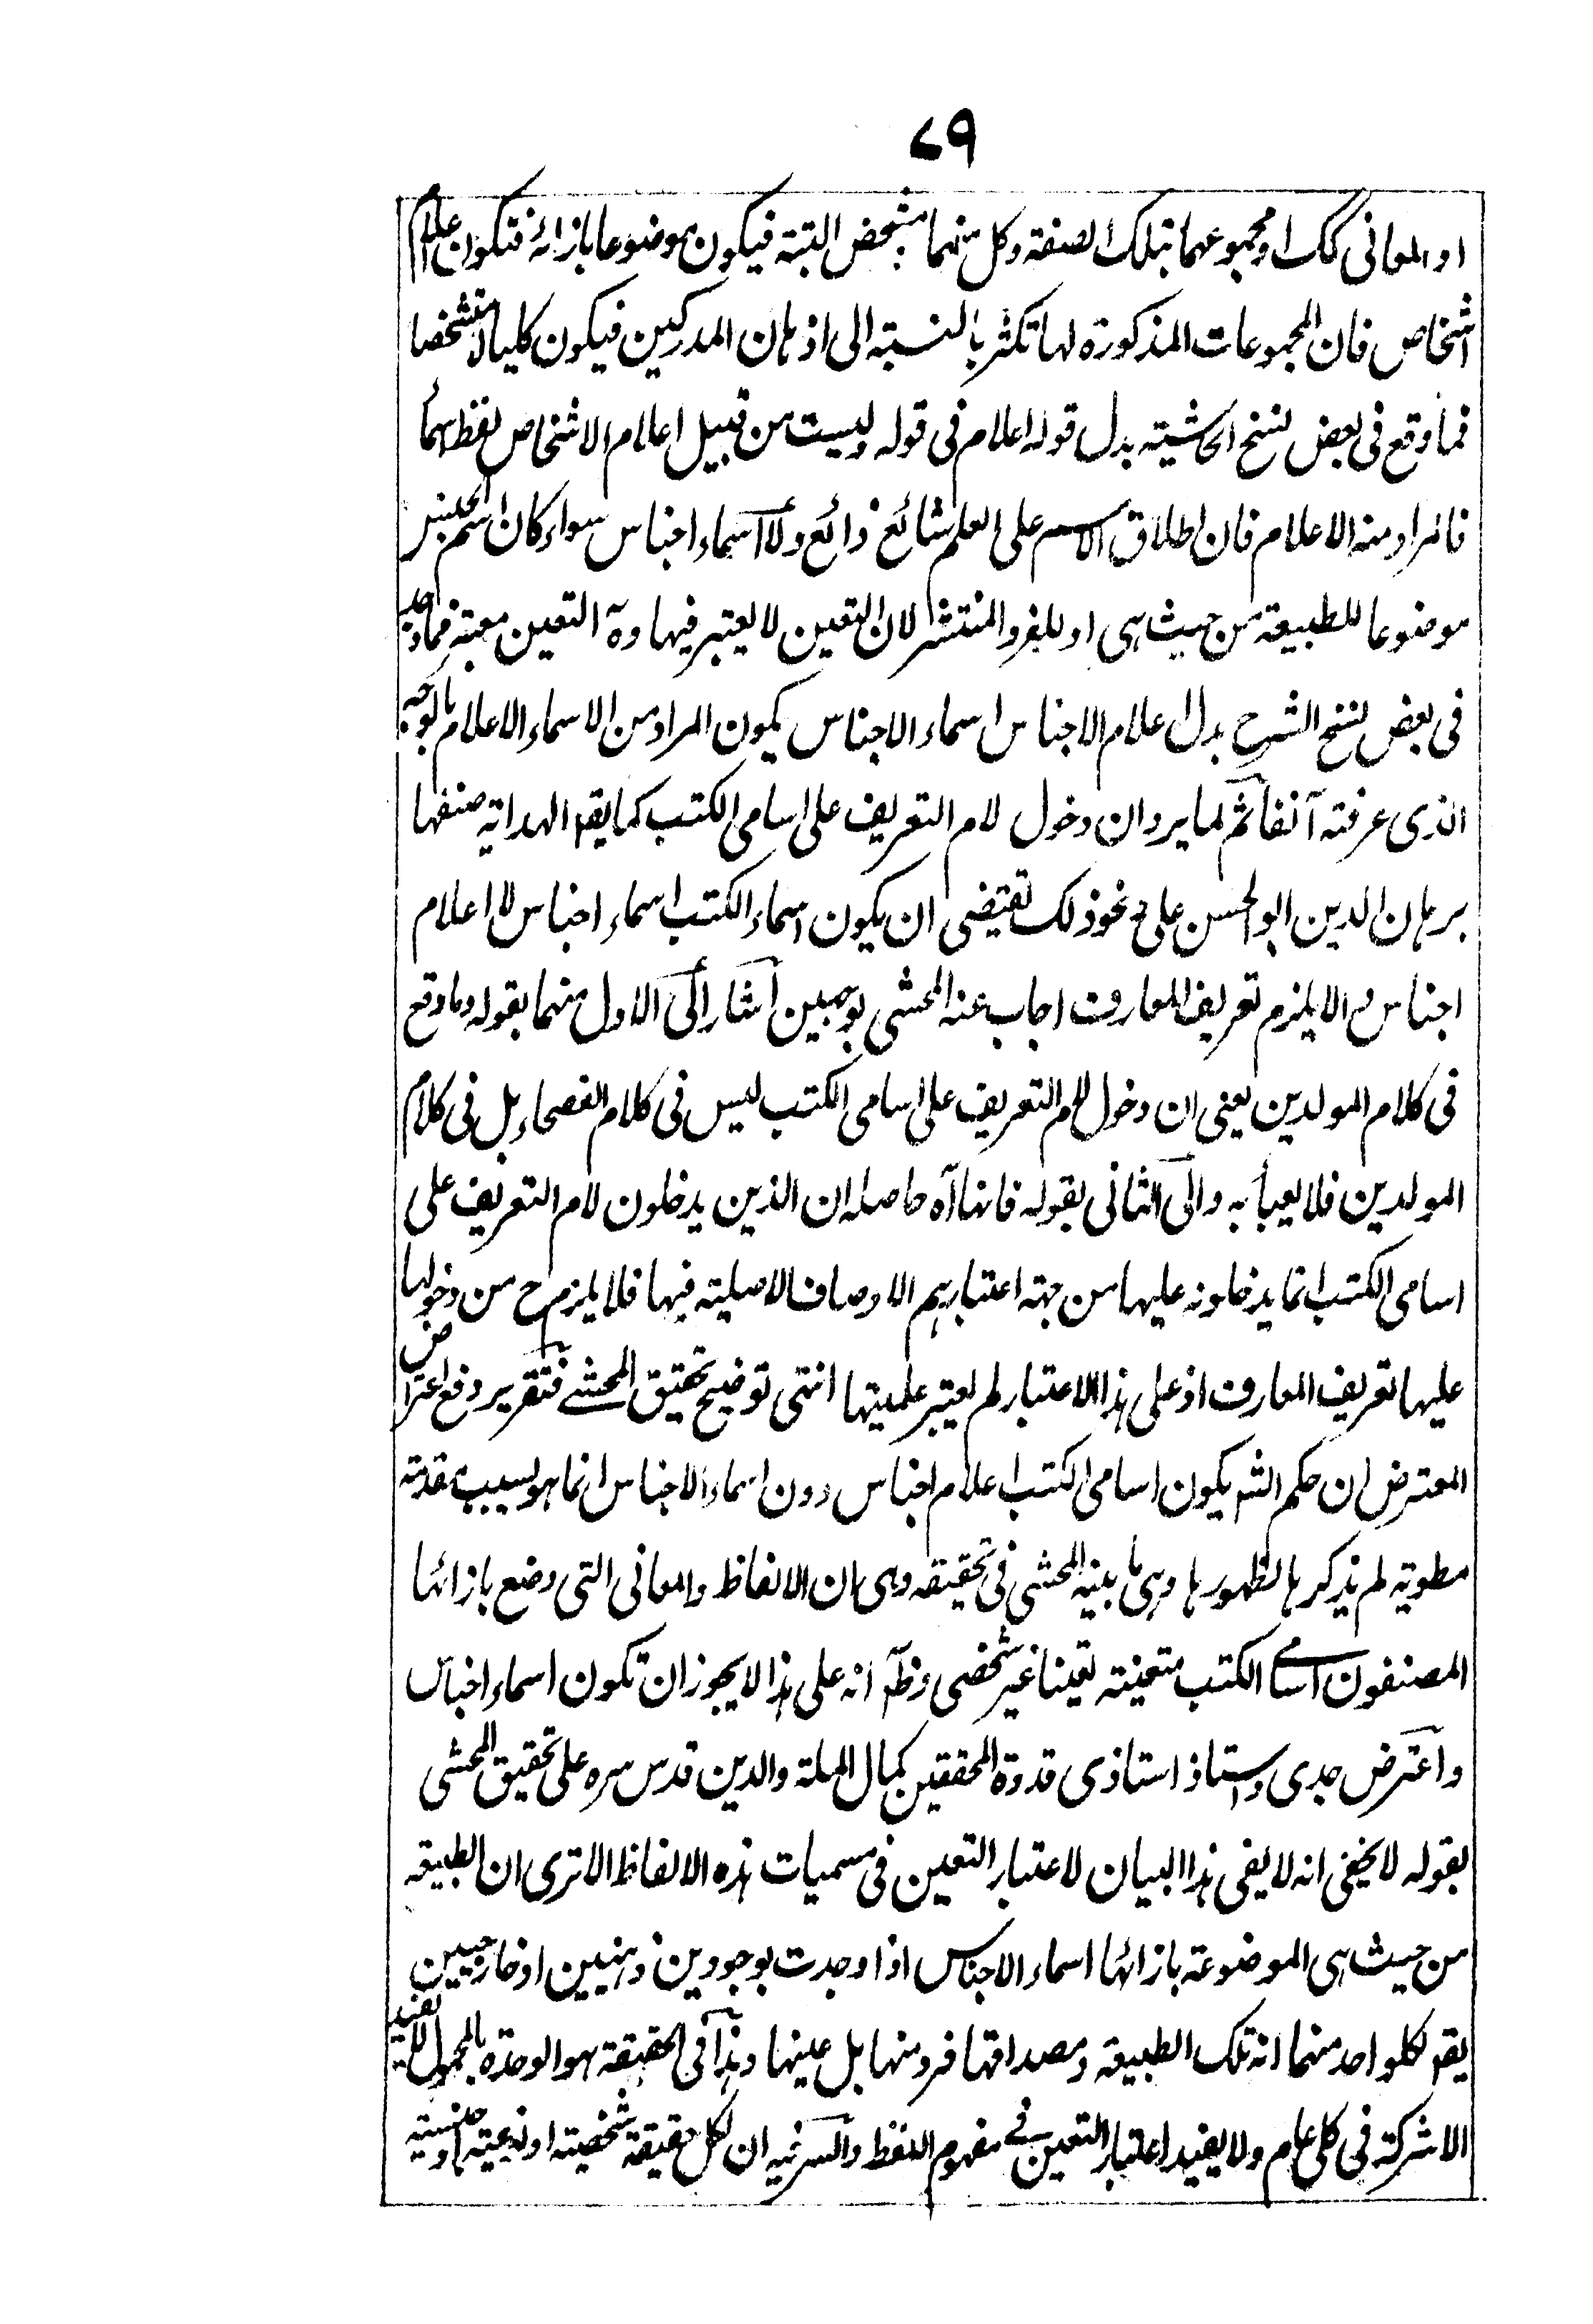 ٧٩
او المعانى كك او مجموعهما بتلك الصفة وكل منهما مشخص البتة فيكون موضوعا بازائه فتكون اعلام
اشخاص فان المجموعات المذكورة لها تكثر بالنسبة الى اذهان المدركين فيكون كليا لا متشخصا
فما وقع فى بعض نسخ الحاشية بدل قوله اعلام فى قوله وليست من قبيل اعلام الاشخاص لفظ اسماء
فالمراد منه الاعلام فان اطلاق الاسم على العلم شائع ذائع ولا اسماء اجناس سواء كان اسم الجنس
موضوعا للطبيعة من حيث هى او للفرد المنتشر لان التعين لا يعتبر فيها وة التعين معتبر فما وجد
فى بعض نسخ الشرح بدل اعلام الاجناس اسماء الاجناس يكون المراد من الاسماء الاعلام بالوجه
الذى عرفته آنفا ثم لما يرد ان دخول لام التعريف على اسامى الكتب كما يقم الهداية صنفها
برهان الدين ابو الحسن على ونحو ذلك تقتضى ان يكون اسماء الكتب اسماء اجناس لا اعلام
اجناس والا يلزم تعريف المعارف اجاب عنه المحشى بوجهين اشار الى الاول منهما بقوله وما وقع
فى كلام المولدين يعنى ان دخول لام التعريف على اسامى الكتب ليس فى كلام الفصحاء بل فى كلام
المولدين فلا يعبأ به والى الثانى بقوله فانها آه حاصله ان الذين يدخلون لام التعريف على
اسامى الكتب انما يدخلونه عليها من جهة اعتبارهم الاوصاف الاصلية فيها فلا يلزم ح من دخولها
عليها تعريف المعارف اذ على هذا الاعتبار لم يعتبر علميتها انتهى توضيح تحقيق المحشى فتقرير دفع اعتراض
المعترض ان حكم الشم بكون اسامى الكتب اعلام اجناس دون اسماء الاجناس انما هو بسبب مقدمة
مطوية لم يذكرها لظهورها وهى ما بينه المحشى فى تحقيقه وهى ان الالفاظ والمعانى التى وضع بازائها
المصنفون اسامى الكتب متعينة تعينا غير شخصى وظم انه على هذا لا يجوز ان تكون اسماء اجناس
واعترض جدى واستاذ استاذى قدوة المحققين كمال الملة والدين قدس سره على تحقيق المحشى
بقوله لا يخفى انه لا يفى هذا البيان لاعتبار التعين فى مسميات هذه الالفاظ الا ترى ان الطبيعة
من حيث هى الموضوعة بازائها اسماء الاجناس اذا وجدت بوجودين ذهنيين او خارجيين
يقم لكلواحد منهما انه تلك الطبيعة ومصداقها فرد منها بل عينها وهذا فى الحقيقة هو الوحدة بالعموم
الاشركة فى كلى عام ولا يفيد اعتبار التعين فى مفهوم اللفظ والسر فيه ان لكل حقيقة شخصية او نوعية او جنسية